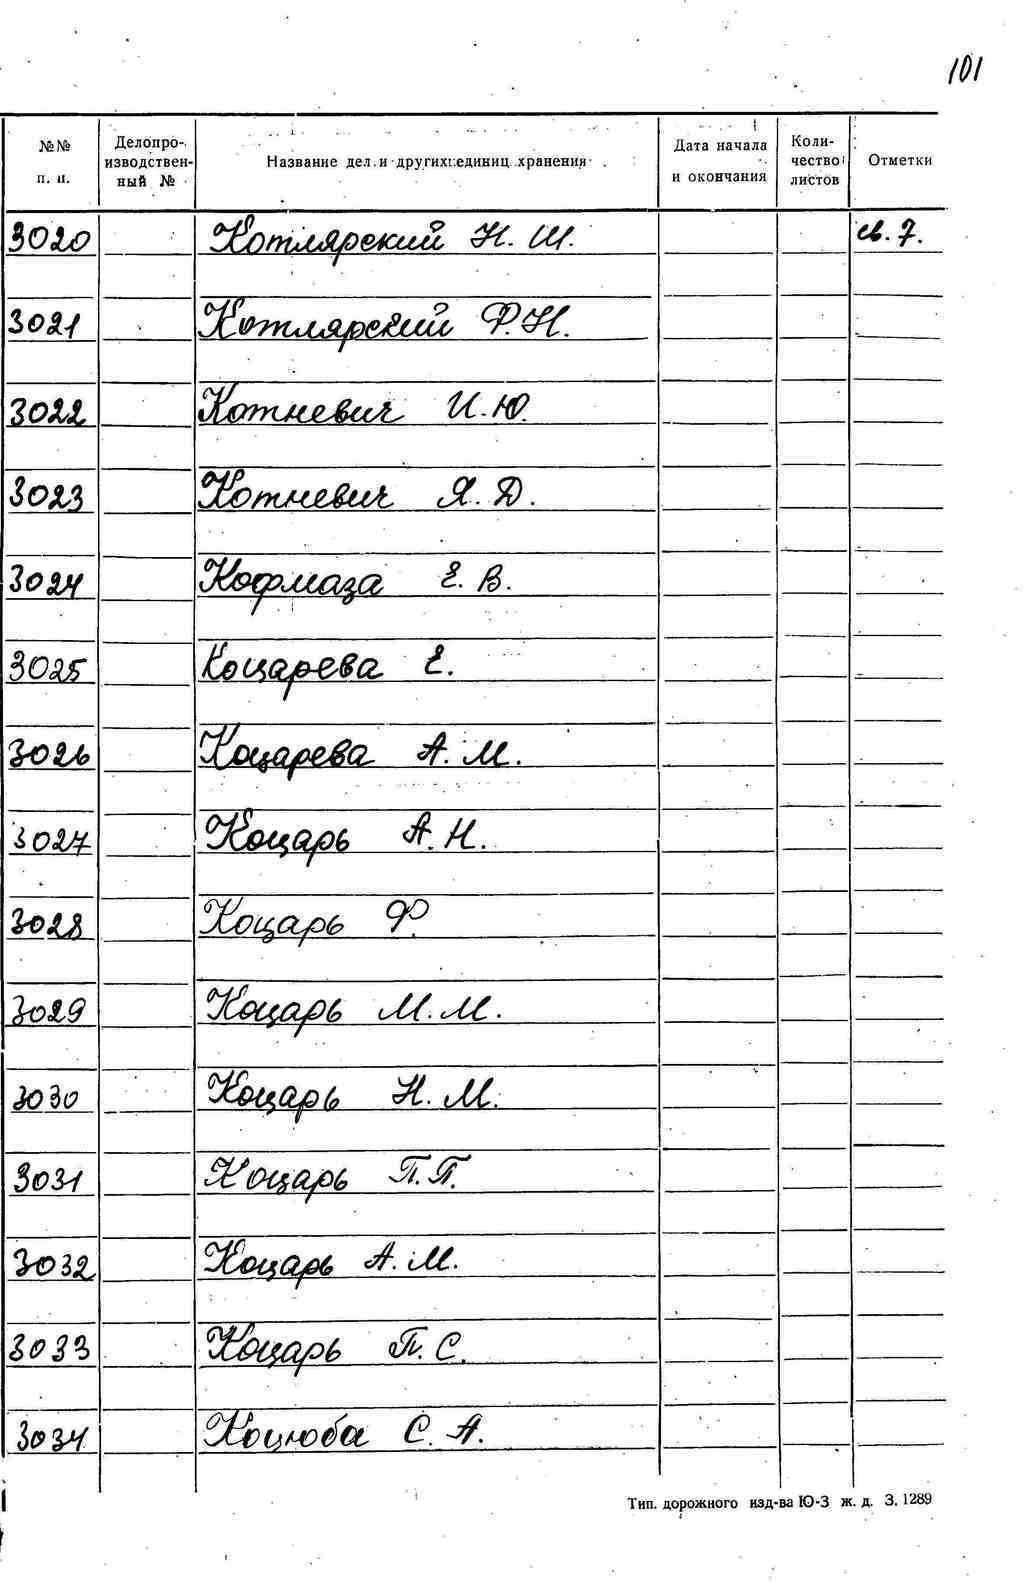 101
№№ п. п. Делопроизводственный № Название дел и других единиц хранения Дата начала и окончания Количество листов Отметки
3020 Котлярский Н. Ш. св. 7.
3021 Котлярский Ф. Н.
3022 Котневич И. Ю.
3023 Котневич Я. Д.
3024 Кофмаза Е. В.
3025 Коцарева Е.
3026 Коцарева А. М.
3027 Коцарь А. Н.
3028 Коцарь Ф.
3029 Коцарь М. М.
3030 Коцарь Н. М.
3031 Коцарь П. П.
3032 Коцарь А. М.
3033 Коцарь П. С.
3034 Коцюба С. А.
Тип. дорожного изд-ва Ю-З ж. д. З. 1289